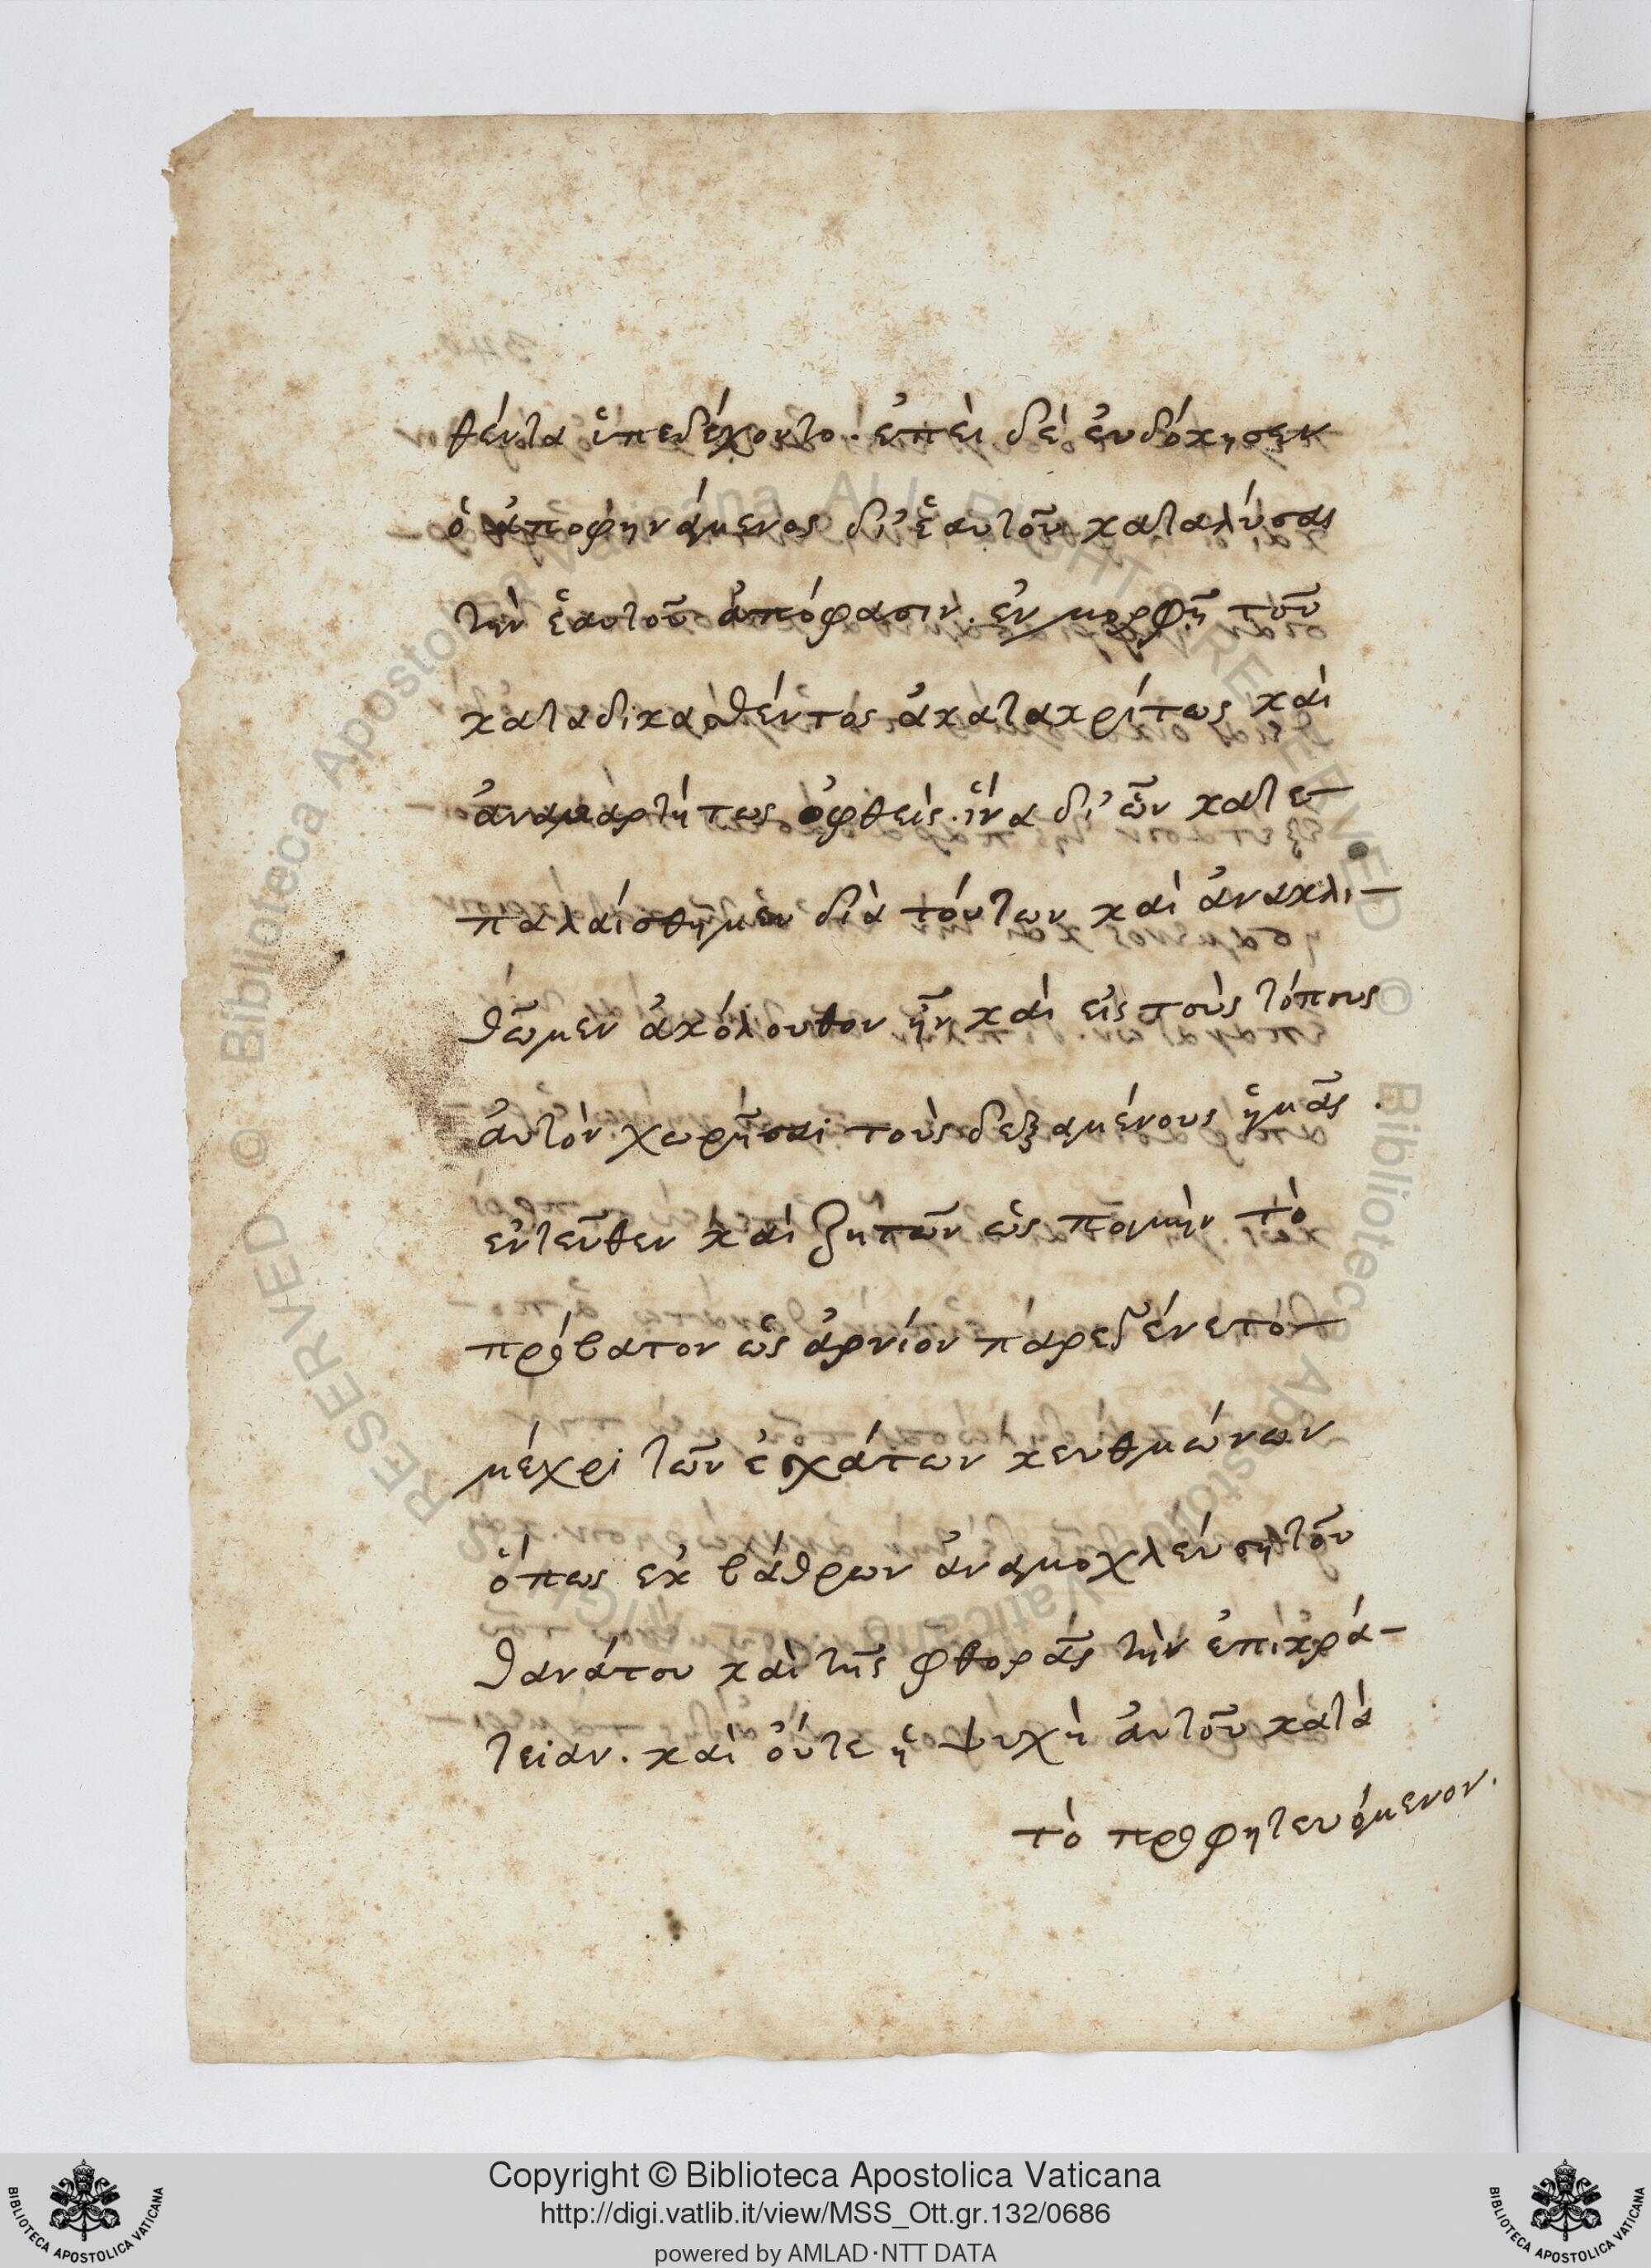 θέντα ὑπεδέχοντο. ἐπεὶ δὲ ἐυδόκησεν
ὁ ἀποφηνάμενος δι' ἑαυτοῦ καταλύσας
τὴν ἑαυτοῦ ἀπόφασιν. ἐν μορφῇ τοῦ
καταδικασθέντος ἀκατακρίτως καὶ
ἀναμαρτήτως ὀφθεὶς. ἵνα δι' ὧν κατε-
παλαίσθημεν διὰ τόυτων καὶ ἀνακλι-
θῶμεν ἀκόλουθον ἦν καὶ εἰς τοὺς τόπους
ἀυτὸν χωρῆσαι τοὺς δεξαμένους ἡμᾶς.
ἐντεῦθεν καὶ ζητῶν ὡς ποιμὴν τὸ
πρόβατον ὡς ἀρνίον παρεγένετο
μέχρι τῶν ἐσχάτων κευθμώνων
ὅπως ἐκ βάθρων ἀναμοχλέυση τοῦ
θανάτου καὶ τῆς φθορᾶς τὴν ἐπικρά-
τειαν. καὶ ὀύτε ἡ ψυχὴ ἀυτοῦ κατὰ
τὸ προφητευόμενον.
Copyright © Biblioteca Apostolica Vaticana
http://digi.vatlib.it/view/MSS_Ott.gr.132/0686
powered by AMLAD·NTT DATA
BIBLIOTECA APOSTOLICA VATICANA
BIBLIOTECA APOSTOLICA VATICANA